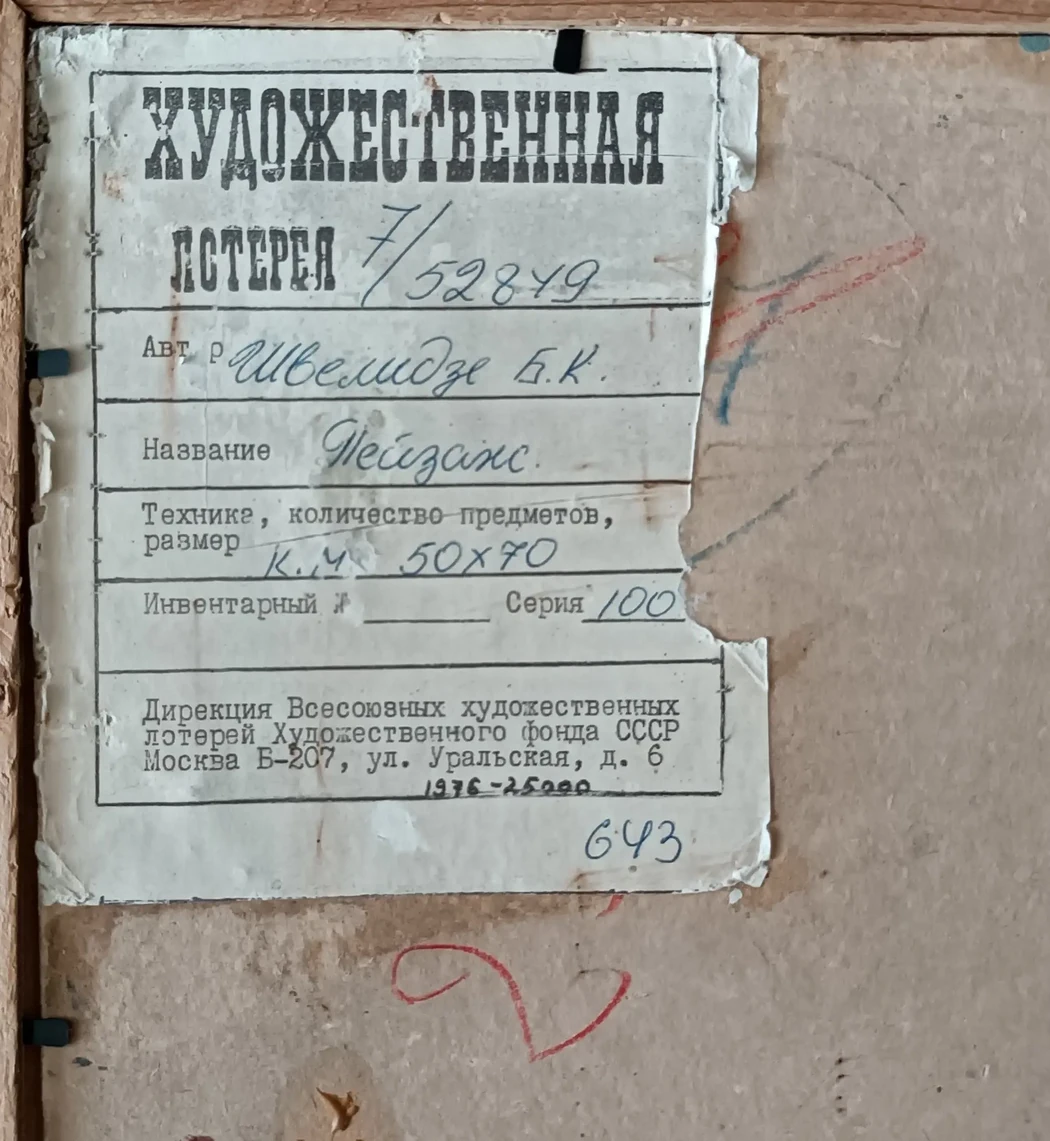 ХУДОЖЕСТВЕННАЯ
ЛОТЕРЕЯ 7/52849
Авт р Швелидзе Б.К.
Название Пейзаж.
Техника, количество предметов,
размер К.М. 50х70
Инвентарный № Серия 100
Дирекция Всесоюзных художественных
лотерей Художественного фонда СССР
Москва Б-207, ул. Уральская, д. 6
1976-25000
643